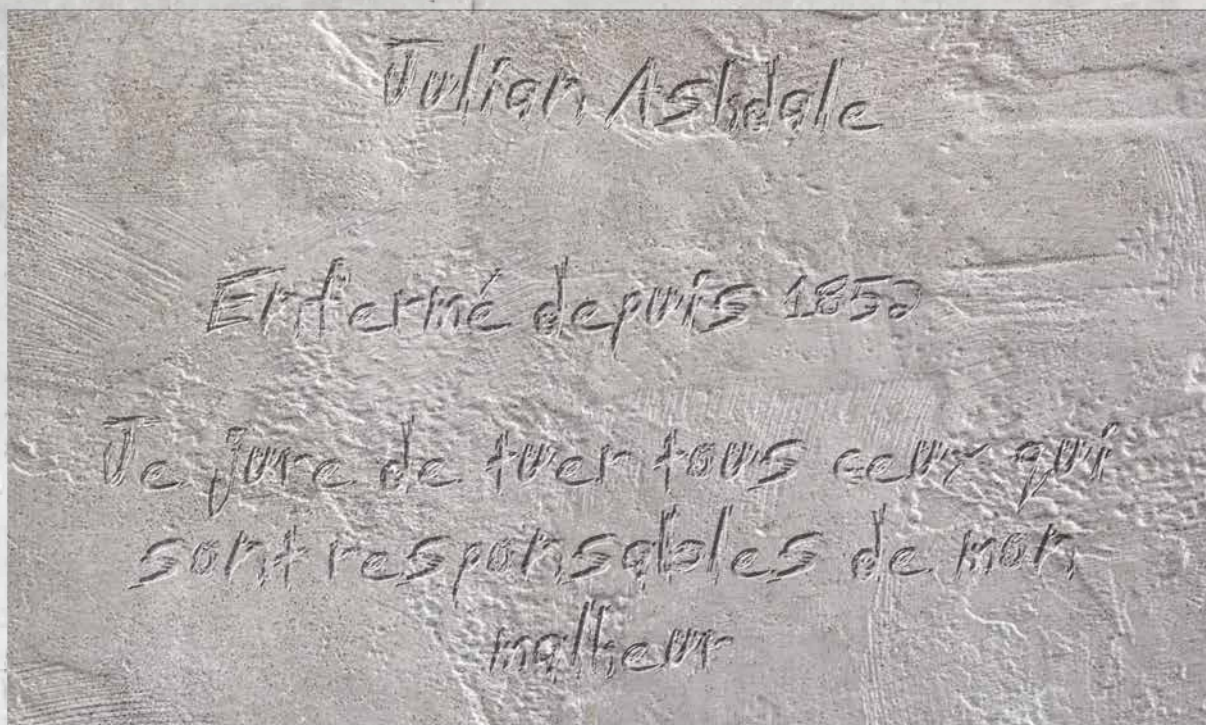 Julian Ashdale
Enfermé depuis 1852
Je jure de tuer tous ceux qui
sont responsables de mon
malheur